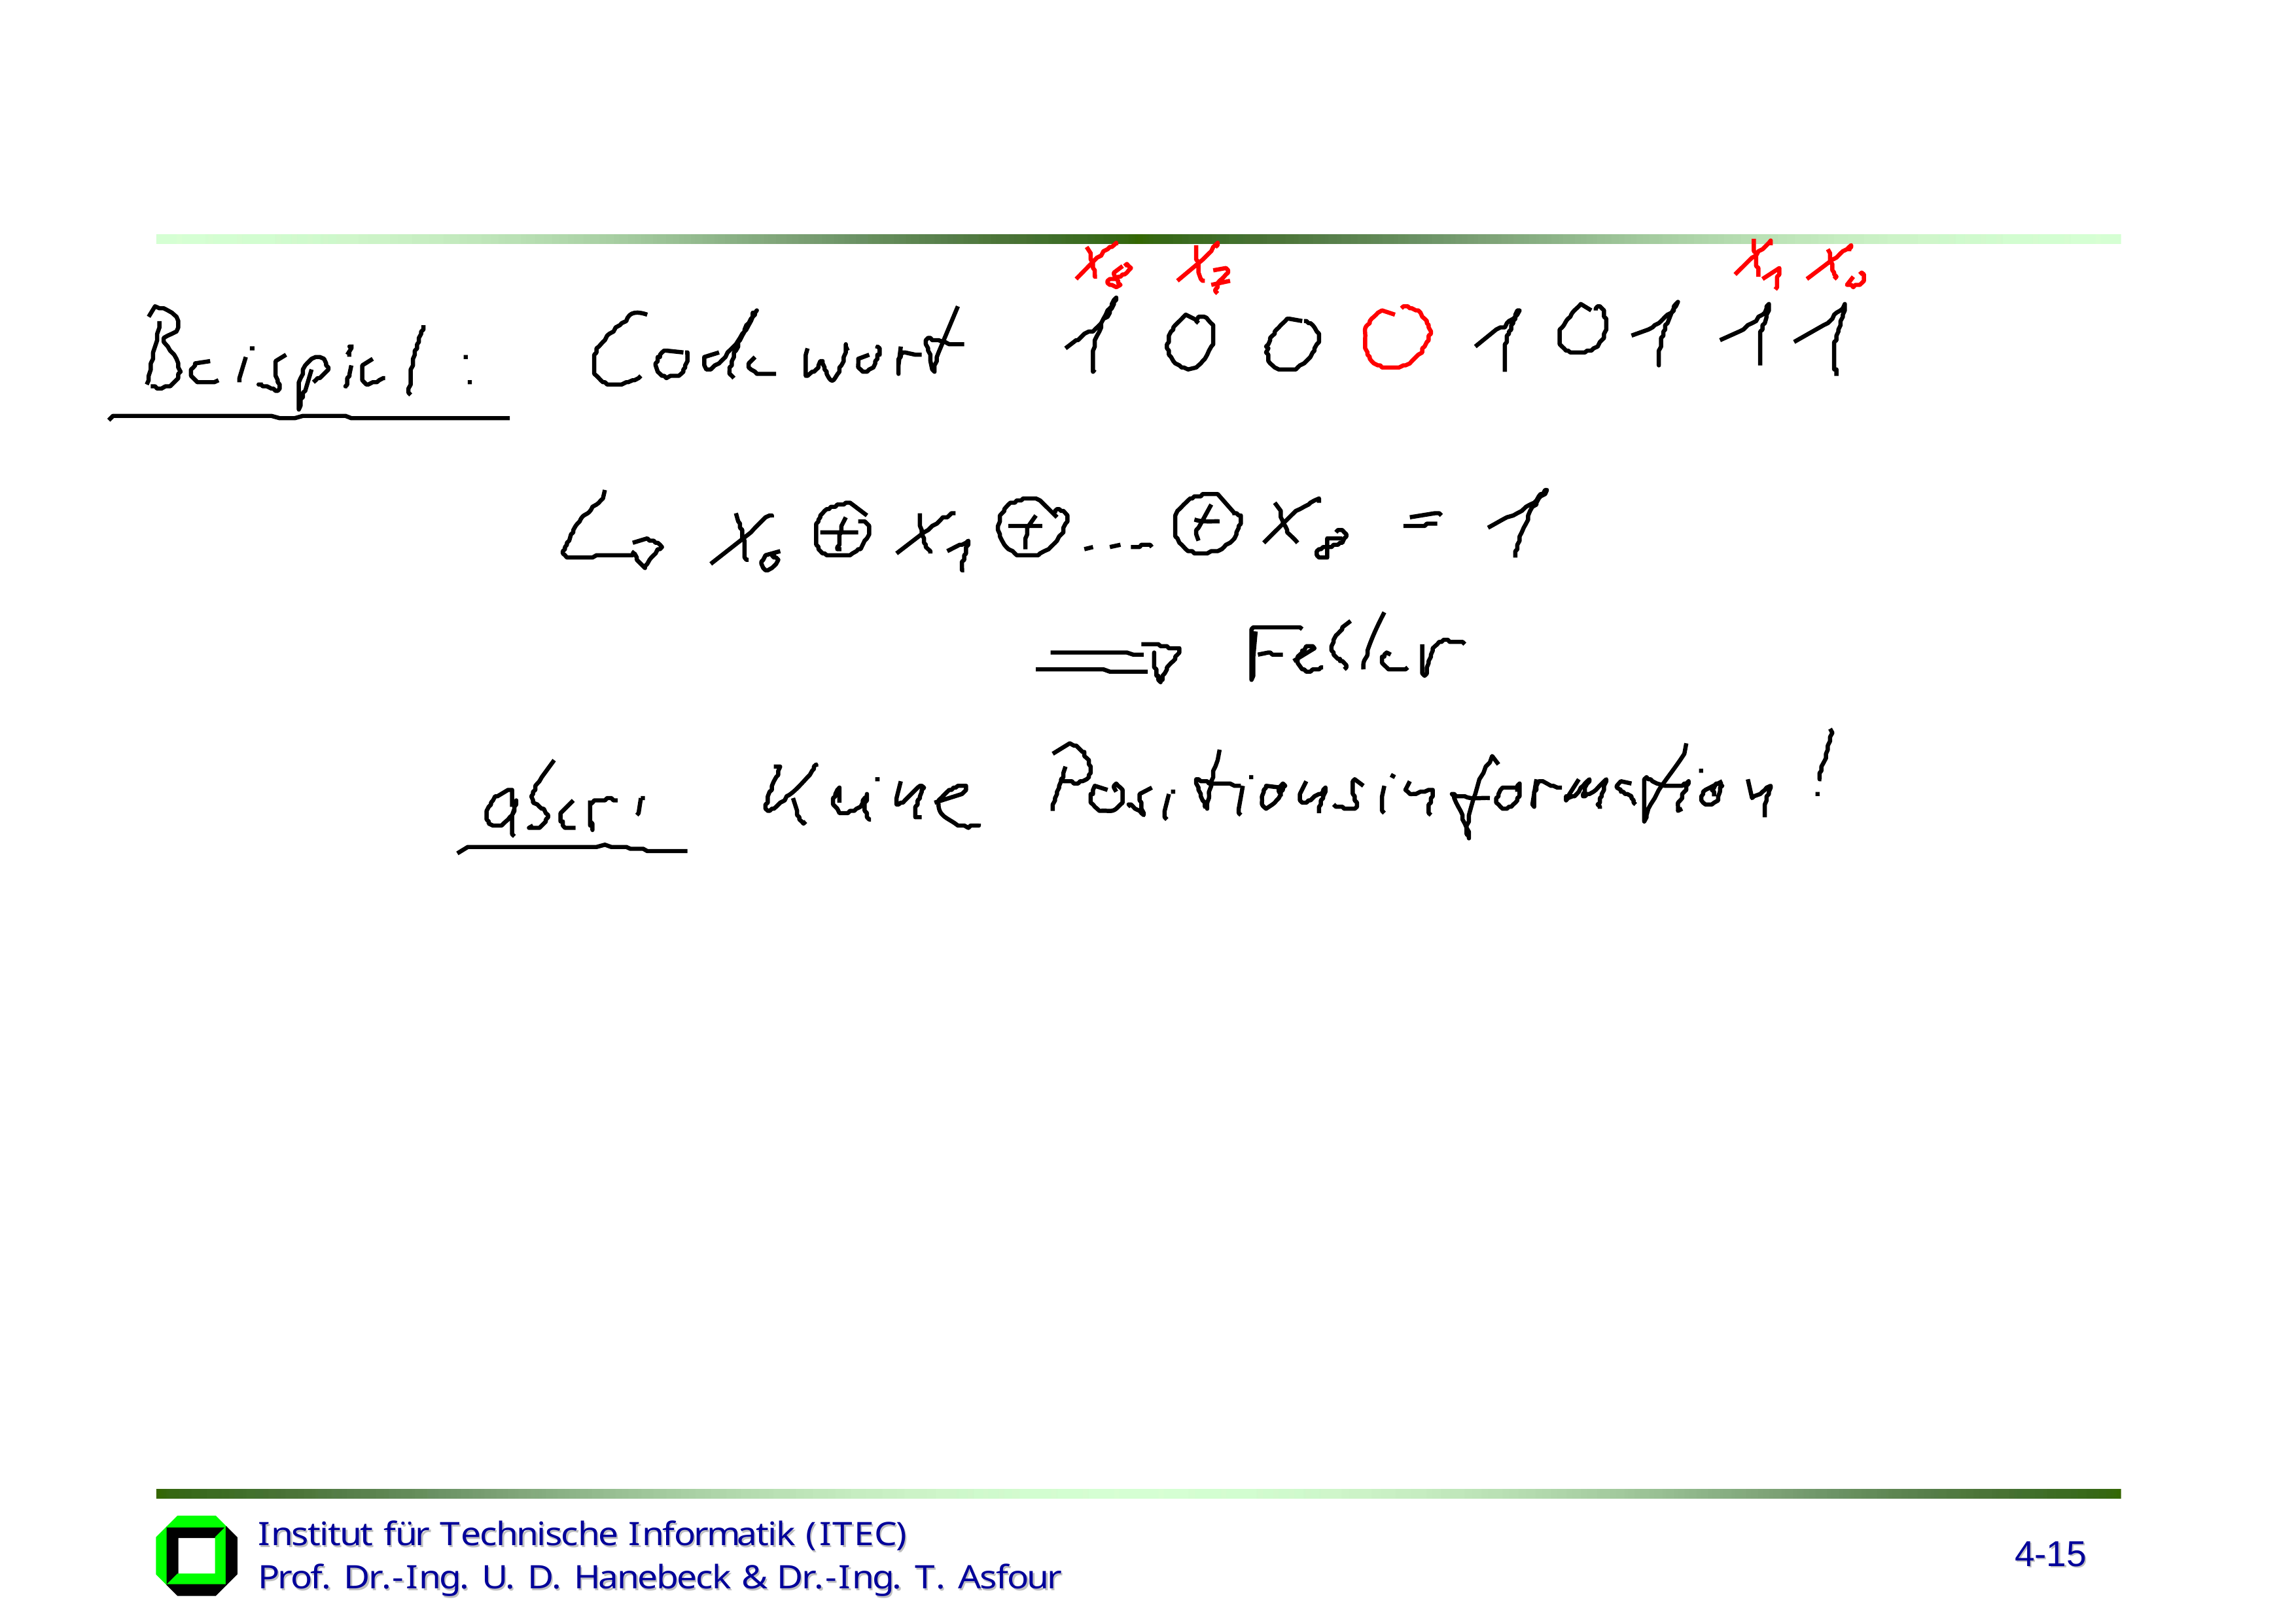 x₈ x₇ x₁ x₀
Beispiel: Codewort 1 0 0 0 1 0 1 1 1
↳ x₀ ⊕ x₁ ⊕ ... ⊕ x₈ = 1
⇒ Fehler
aber: Keine Positionsinformation!
Institut für Technische Informatik (ITEC)
Prof. Dr.-Ing. U. D. Hanebeck & Dr.-Ing. T. Asfour
4-15